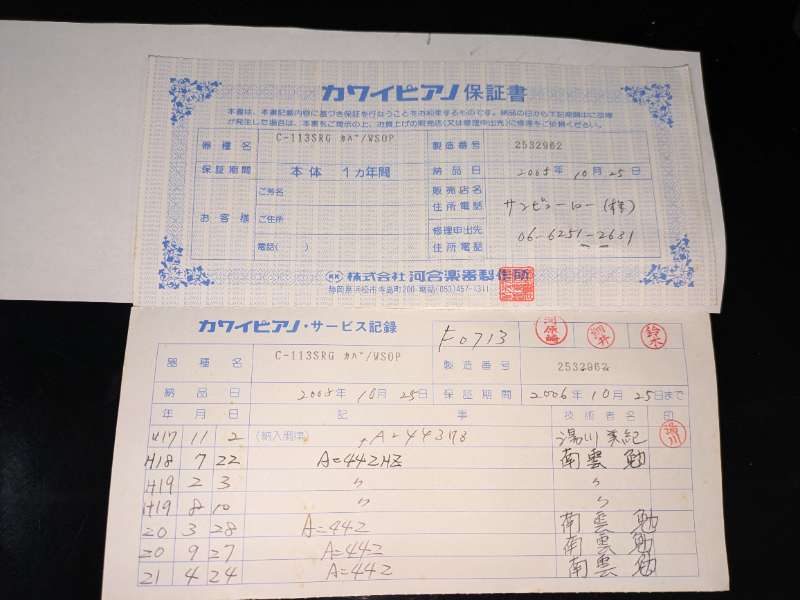 カワイピアノ 保証書
本書は、本書記載内容に基づき保証を行なうことをお約束するものです。納品の日から下記期間中に故障
が発生した場合は、本書をご提示の上、お買上げの販売店(又は修理申出先)に修理をご依頼ください。
器種名 C-113SRG カバ/WSOP 製造番号 2532962
保証期間 本体 1ヵ年間 納品日 2005年 10月 25日
お客様 ご芳名
ご住所
電話( )
販売店名 住所電話 サンピアーロー(株)
修理申出先 住所電話 06-6251-2631
株式会社 河合楽器製作所
静岡県浜松市寺島町200 電話(053)457-1311
カワイピアノ・サービス記録 F0713 河原崎 河井 鈴木
器種名 C-113SRG カバ/WSOP 製造番号 2532962
納品日 2005年 10月 25日 保証期間 2006年 10月 25日まで
年月日 記事 技術者名 印
H17 11 2 (納入調律) A=443Hz 湯川 美紀 湯川
H18 7 22 A=442HZ 南雲 勉
H19 2 3 〃 〃
H19 8 10 〃 〃
20 3 28 A=442 南雲 勉
20 9 27 A=442 南雲 勉
21 4 24 A=442 南雲 勉